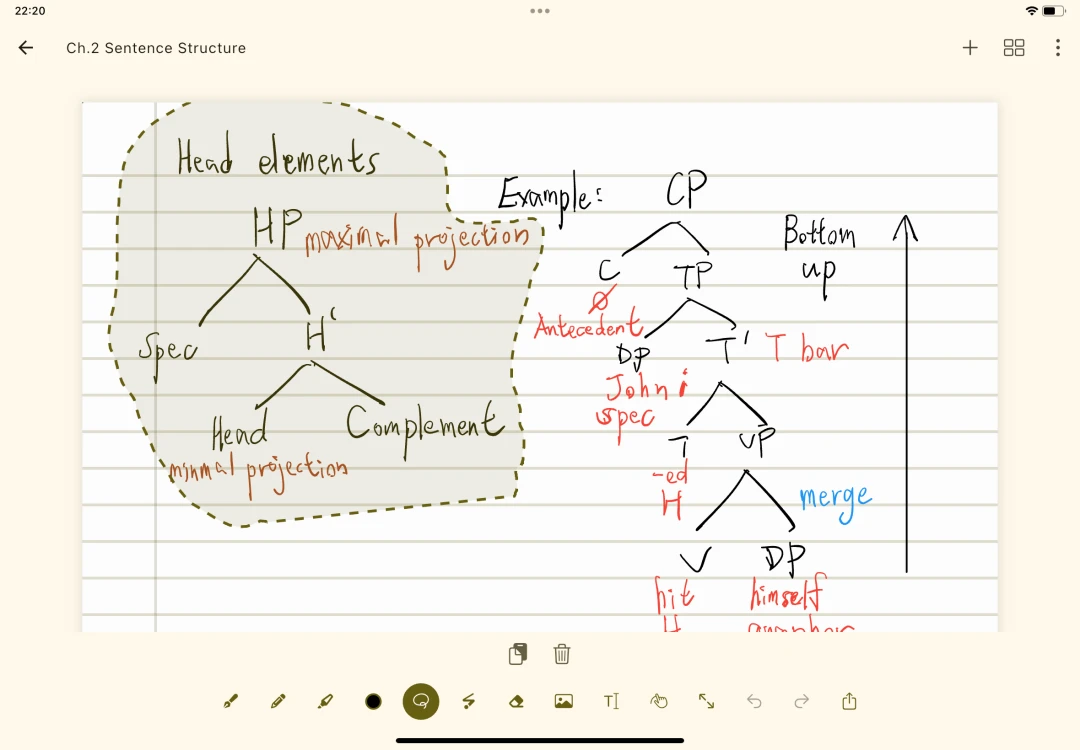 22:20
Ch.2 Sentence Structure
Head elements
HP maximal projection
Spec H'
Head Complement
minmal projection
Example: CP
Bottom up
C TP
Ø
Antecedent
DP T' T bar
John i
spec
T VP
-ed
H
merge
V DP
hit himself
H anaphor
T